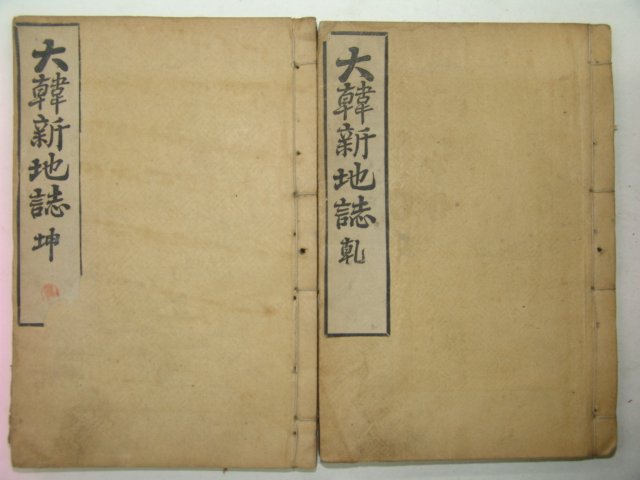 大韓新地誌 乾
大韓新地誌 坤